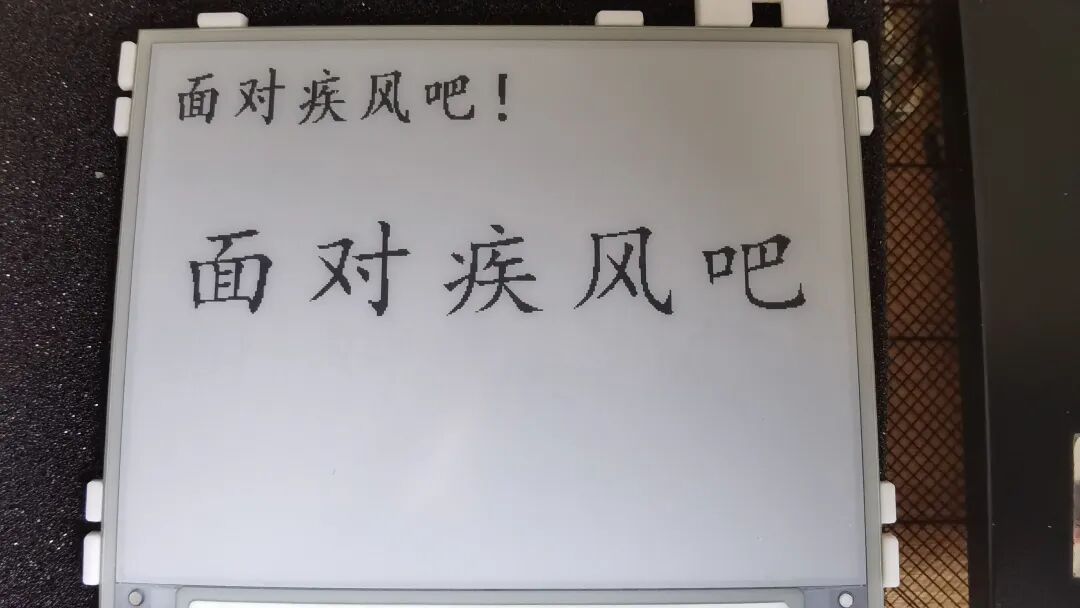 面对疾风吧！
面对疾风吧